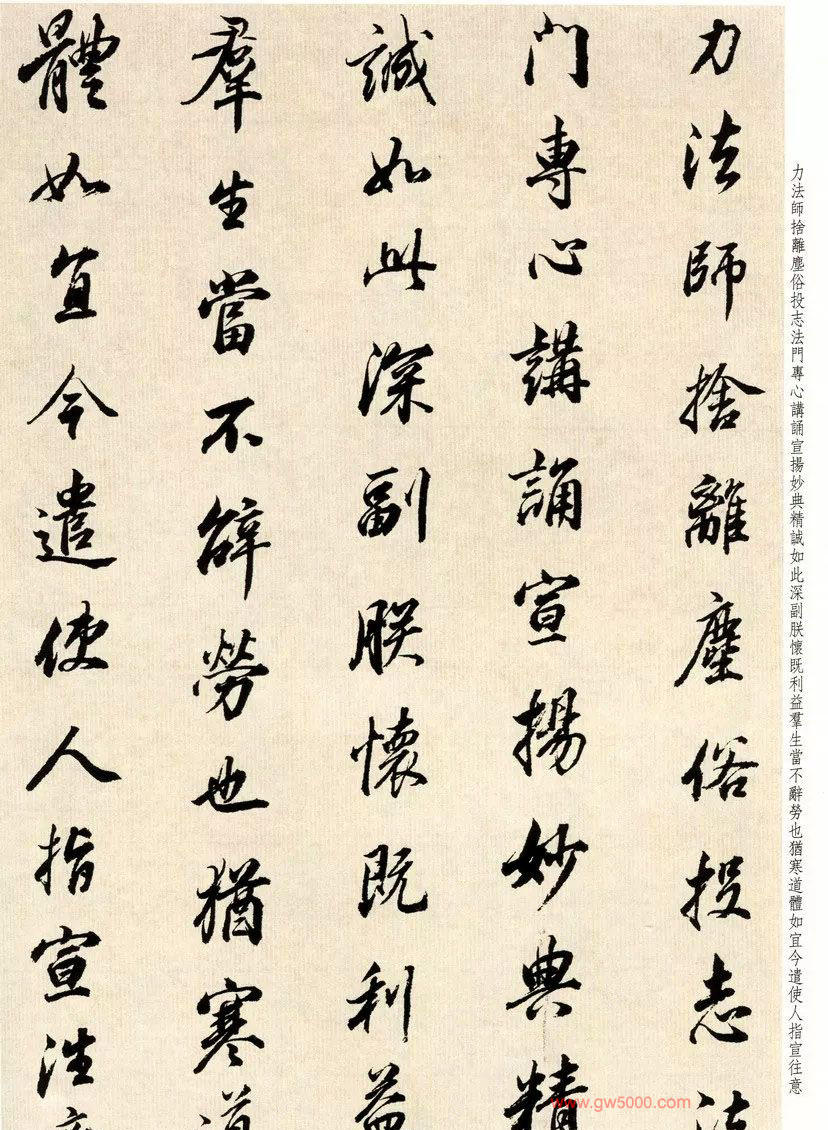 力法師捨離塵俗投志法
門專心講誦宣揚妙典精
誠如此深副朕懷既利益
羣生當不辭勞也猶寒道
體如宜今遣使人指宣往意
力法師捨離塵俗投志法門專心講誦宣揚妙典精誠如此深副朕懷既利益羣生當不辭勞也猶寒道體如宜今遣使人指宣往意
www.gw5000.com